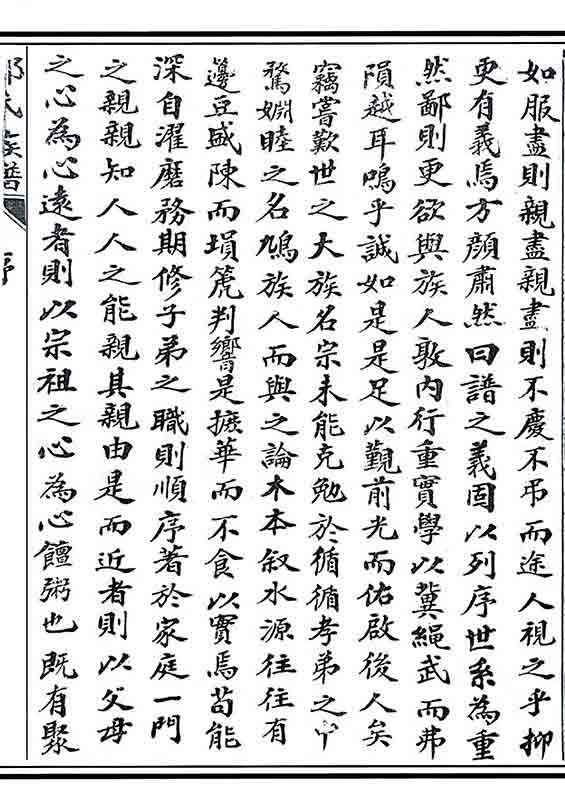 如服盡則親盡親盡則不慶不弔而途人視之乎抑
更有義焉方顏肅然曰譜之義固以列序世系為重
然鄙則更欲與族人敦內行重實學以冀繩武而弗
隕越耳鳴乎誠如是是足以觀前光而佑啟後人矣
竊嘗歎世之大族名宗未能克勉於循循孝弟之中
騖婣睦之名鳩族人而與之論木本叙水源往往有
籩豆盛陳而塤箎判響是摭華而不食以實焉苟能
深自濯磨務期修子弟之職則順序著於家庭一門
之親親知人人之能親其親由是而近者則以父母
之心為心遠者則以宗祖之心為心饘粥也既有聚
氏族譜
序